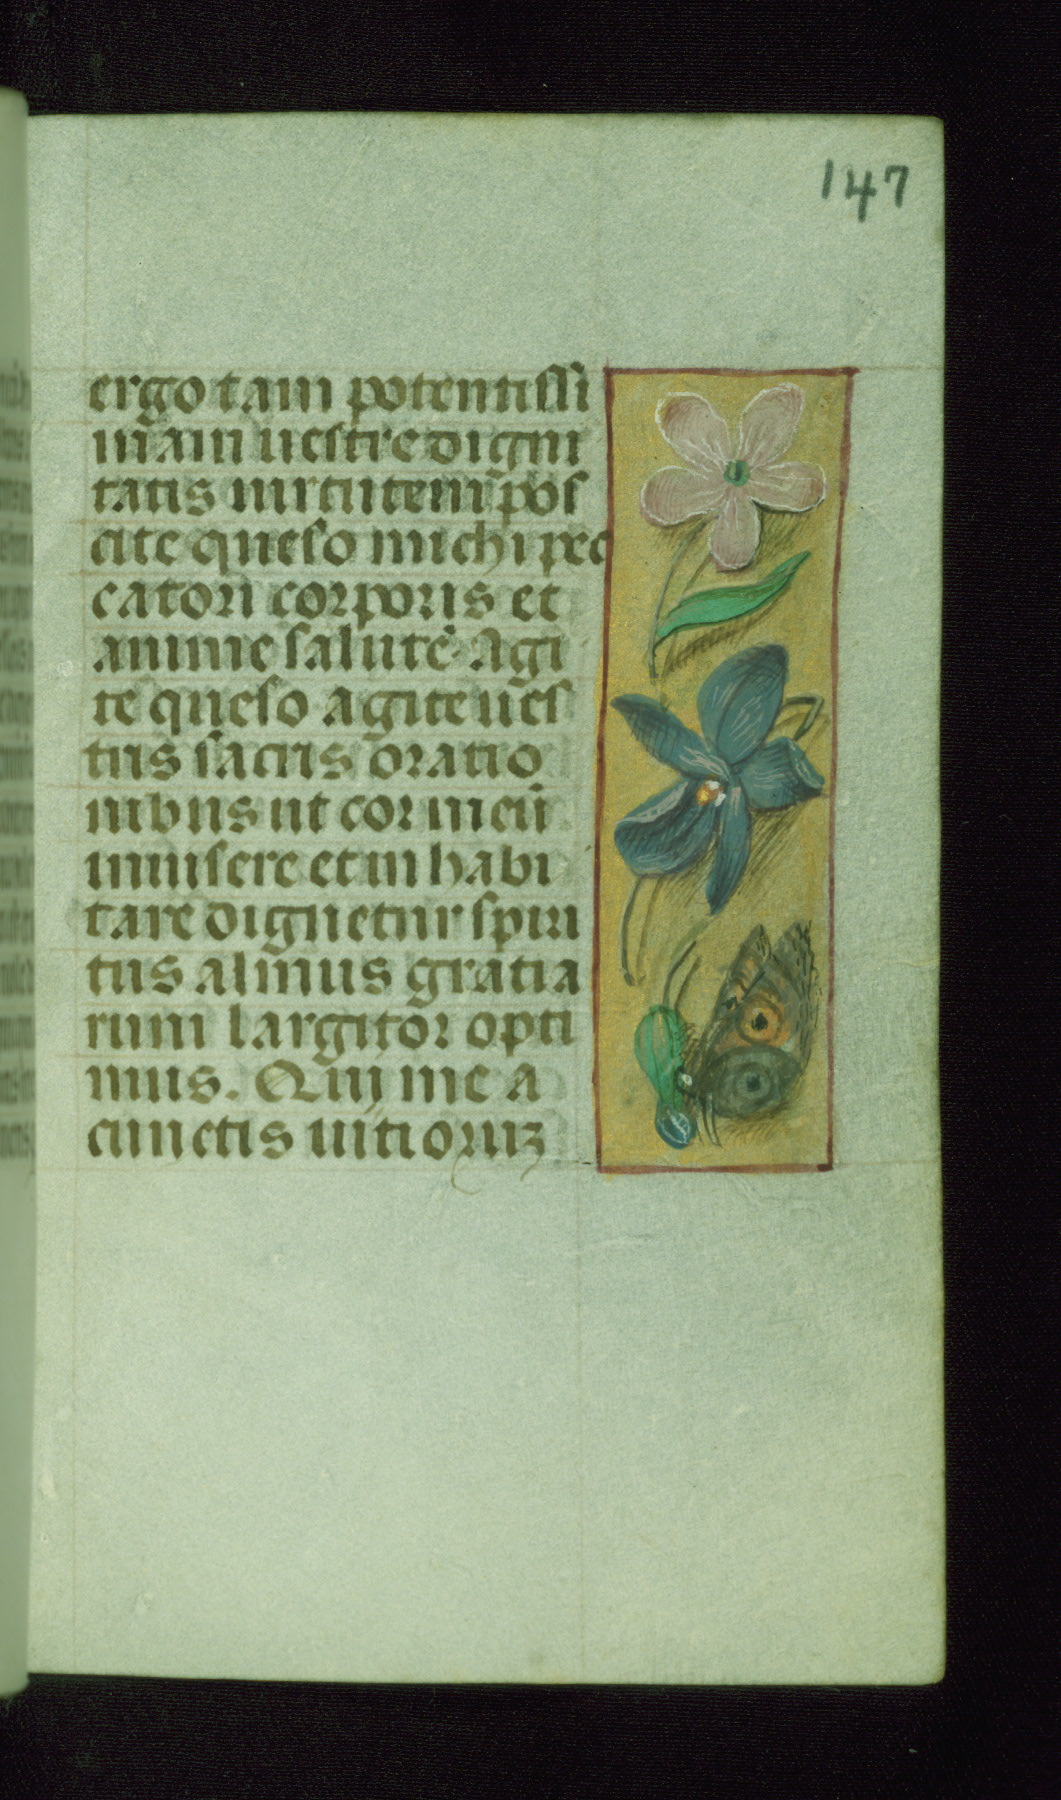 147
ergo tam potentissi
mam uestre digni
tatis uirtutem pos
cite queso michi pec
catori corporis et
anime salutē. Agi
te queso agite ues
tris sacris oratio
nibus ut cor meū
inuisere et inhabi
tare dignetur spiri
tus almus gratia
rum largitor opti
mus. Qui me a
cunctis uitioruz